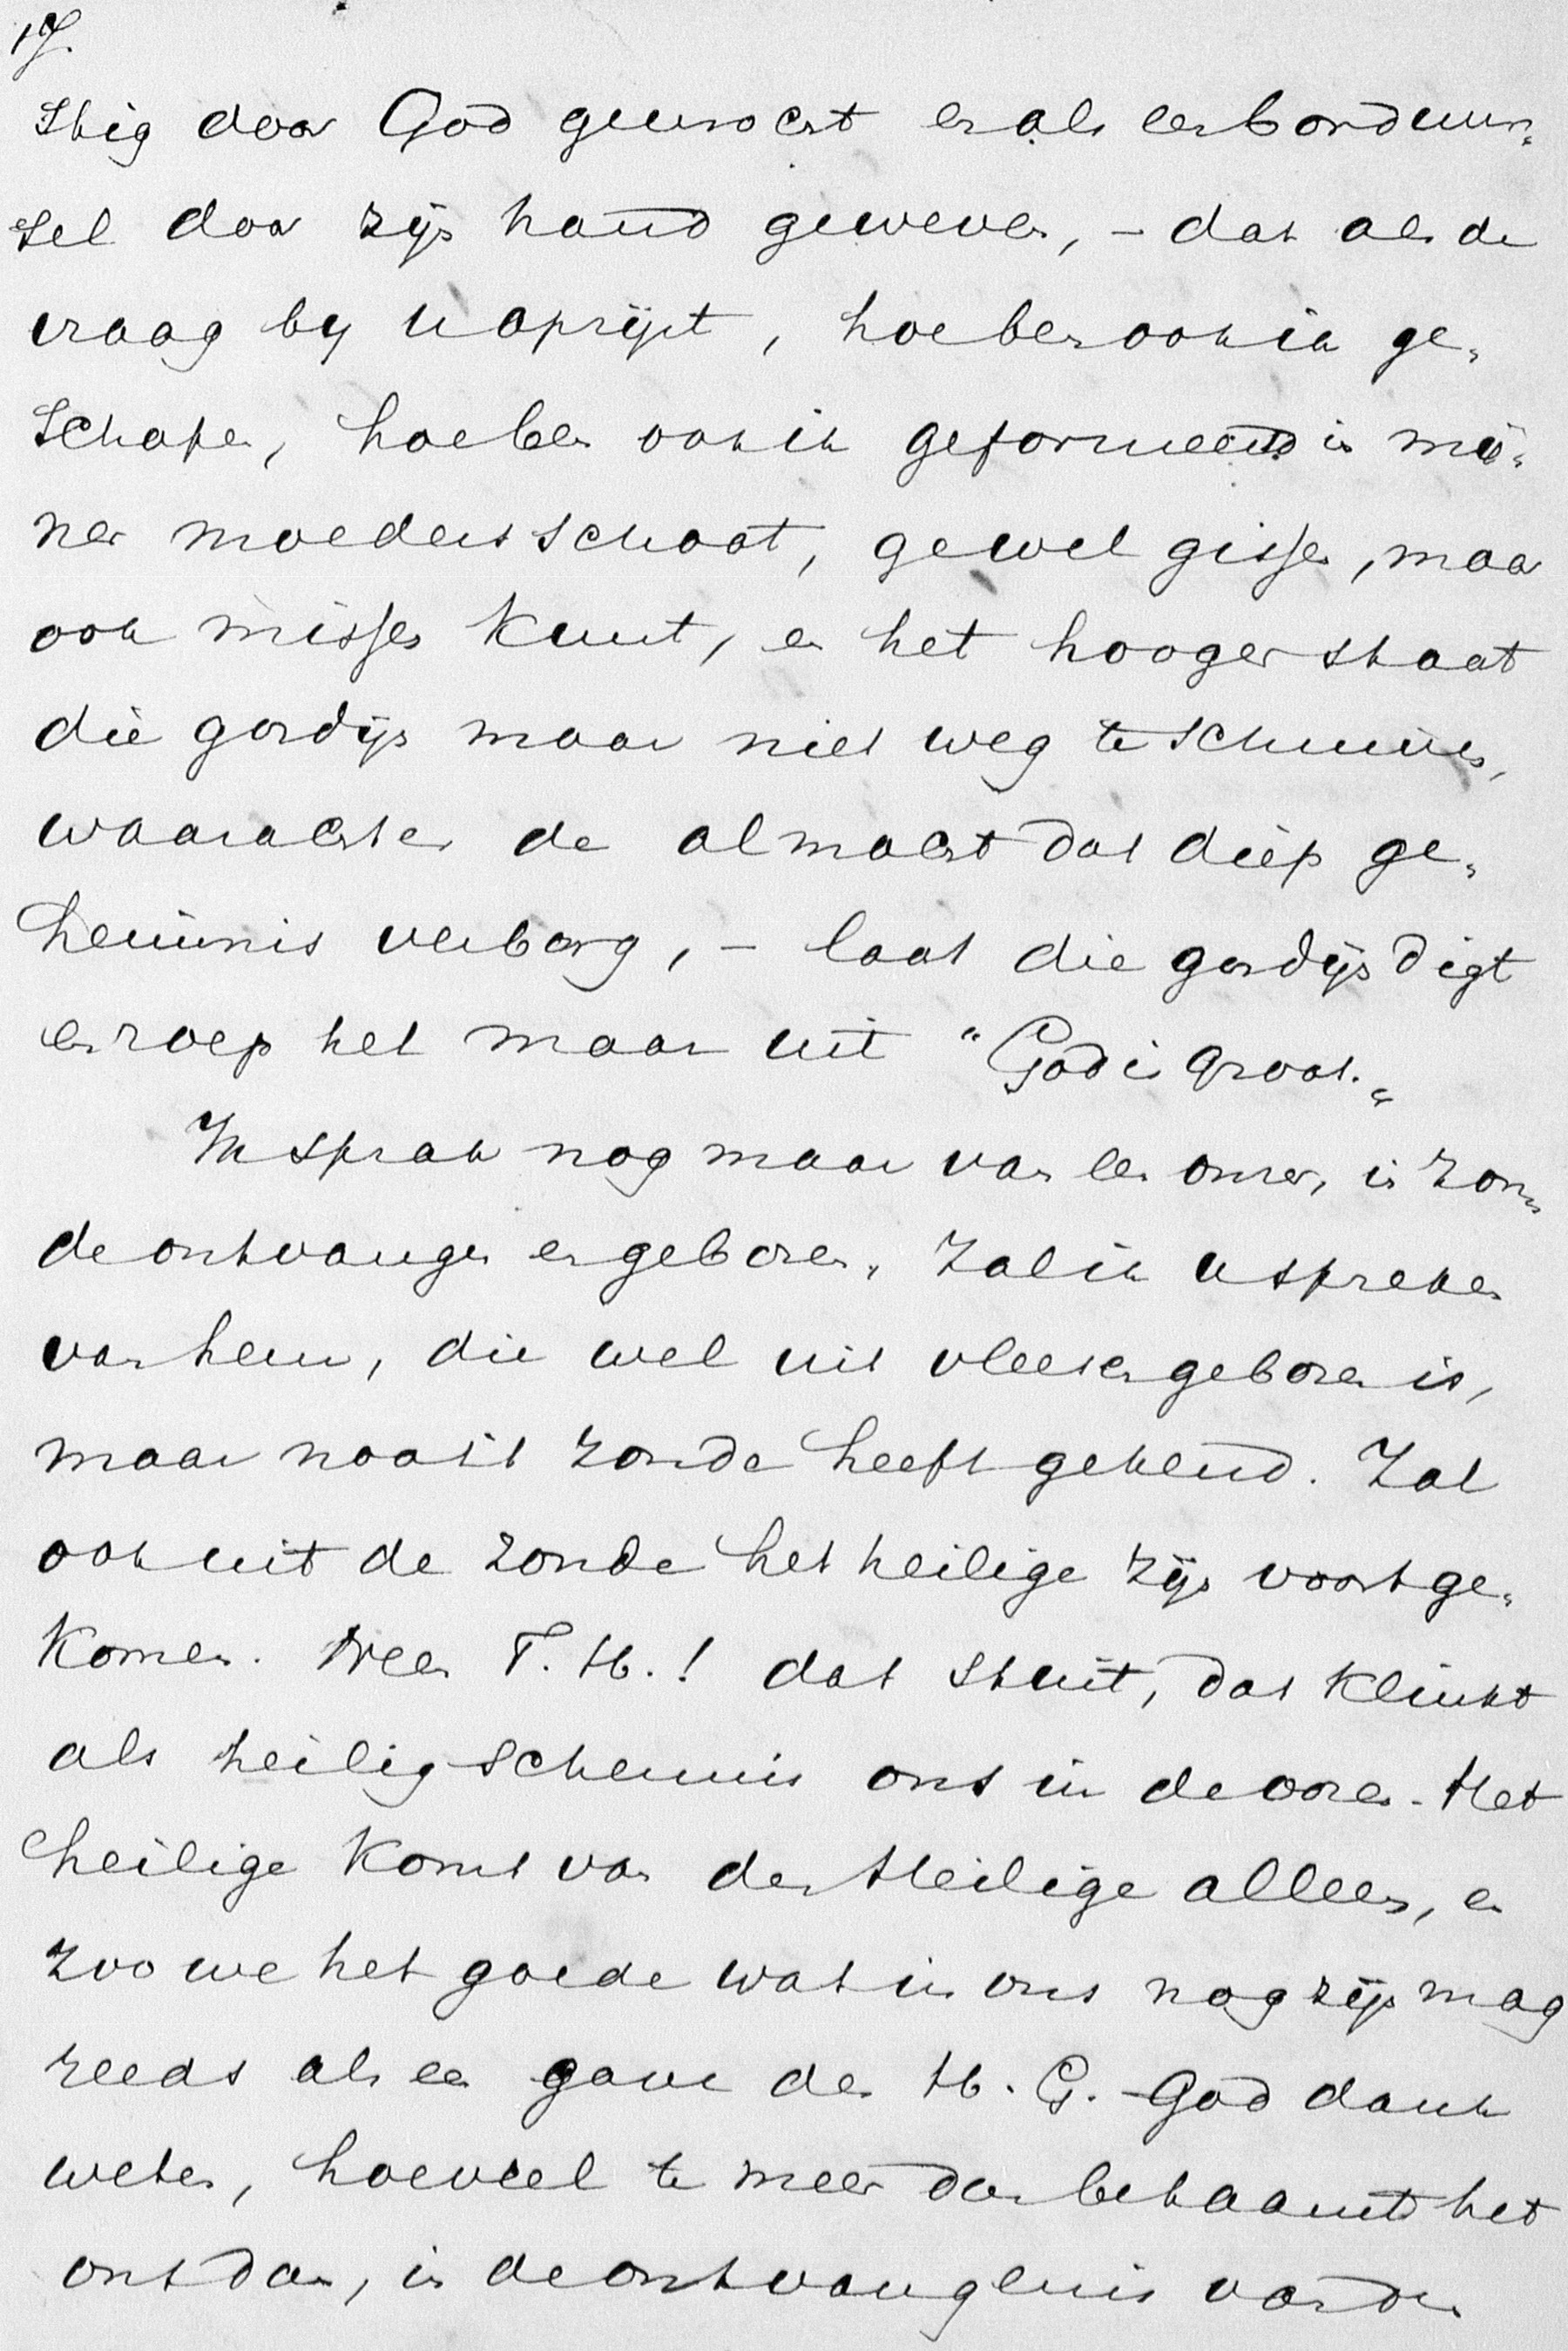 17.
stig door God gewrocht en als een borduur„
sel door zijn hand geweven, – dat als de
vraag bij u oprijst, hoe ben ook ik ge„
schapen, hoe ben ook ik geformeerd in mij„
ner moeders schoot, ge wel gissen, maar
ook missen kunt, en het hooger staat
die gordijn maar niet weg te schuiven,
waarachter de almacht dat diep ge„
heimnis verborg, – laat die gordijn digt
en roep het maar uit "God is groot.„
Ik sprak nog maar van een onzer, in zon„
de ontvangen en geboren. Zal ik u spreken
van hem, die wel uit vleesch geboren is,
maar nooit zonde heeft gekend. Zal
ook uit de zonde het heilige zijn voortge„
komen. Neen T. H.! dat stuit, dat klinkt
als heiligschennis ons in de ooren. Het
heilige komt van den Heilige alleen, en
zoo we het goede wat in ons nog zijn mag
reeds als een gave des H. G. God dank
weten, hoeveel te meer dan betaamt het
ons dan, in de ontvangenis van den